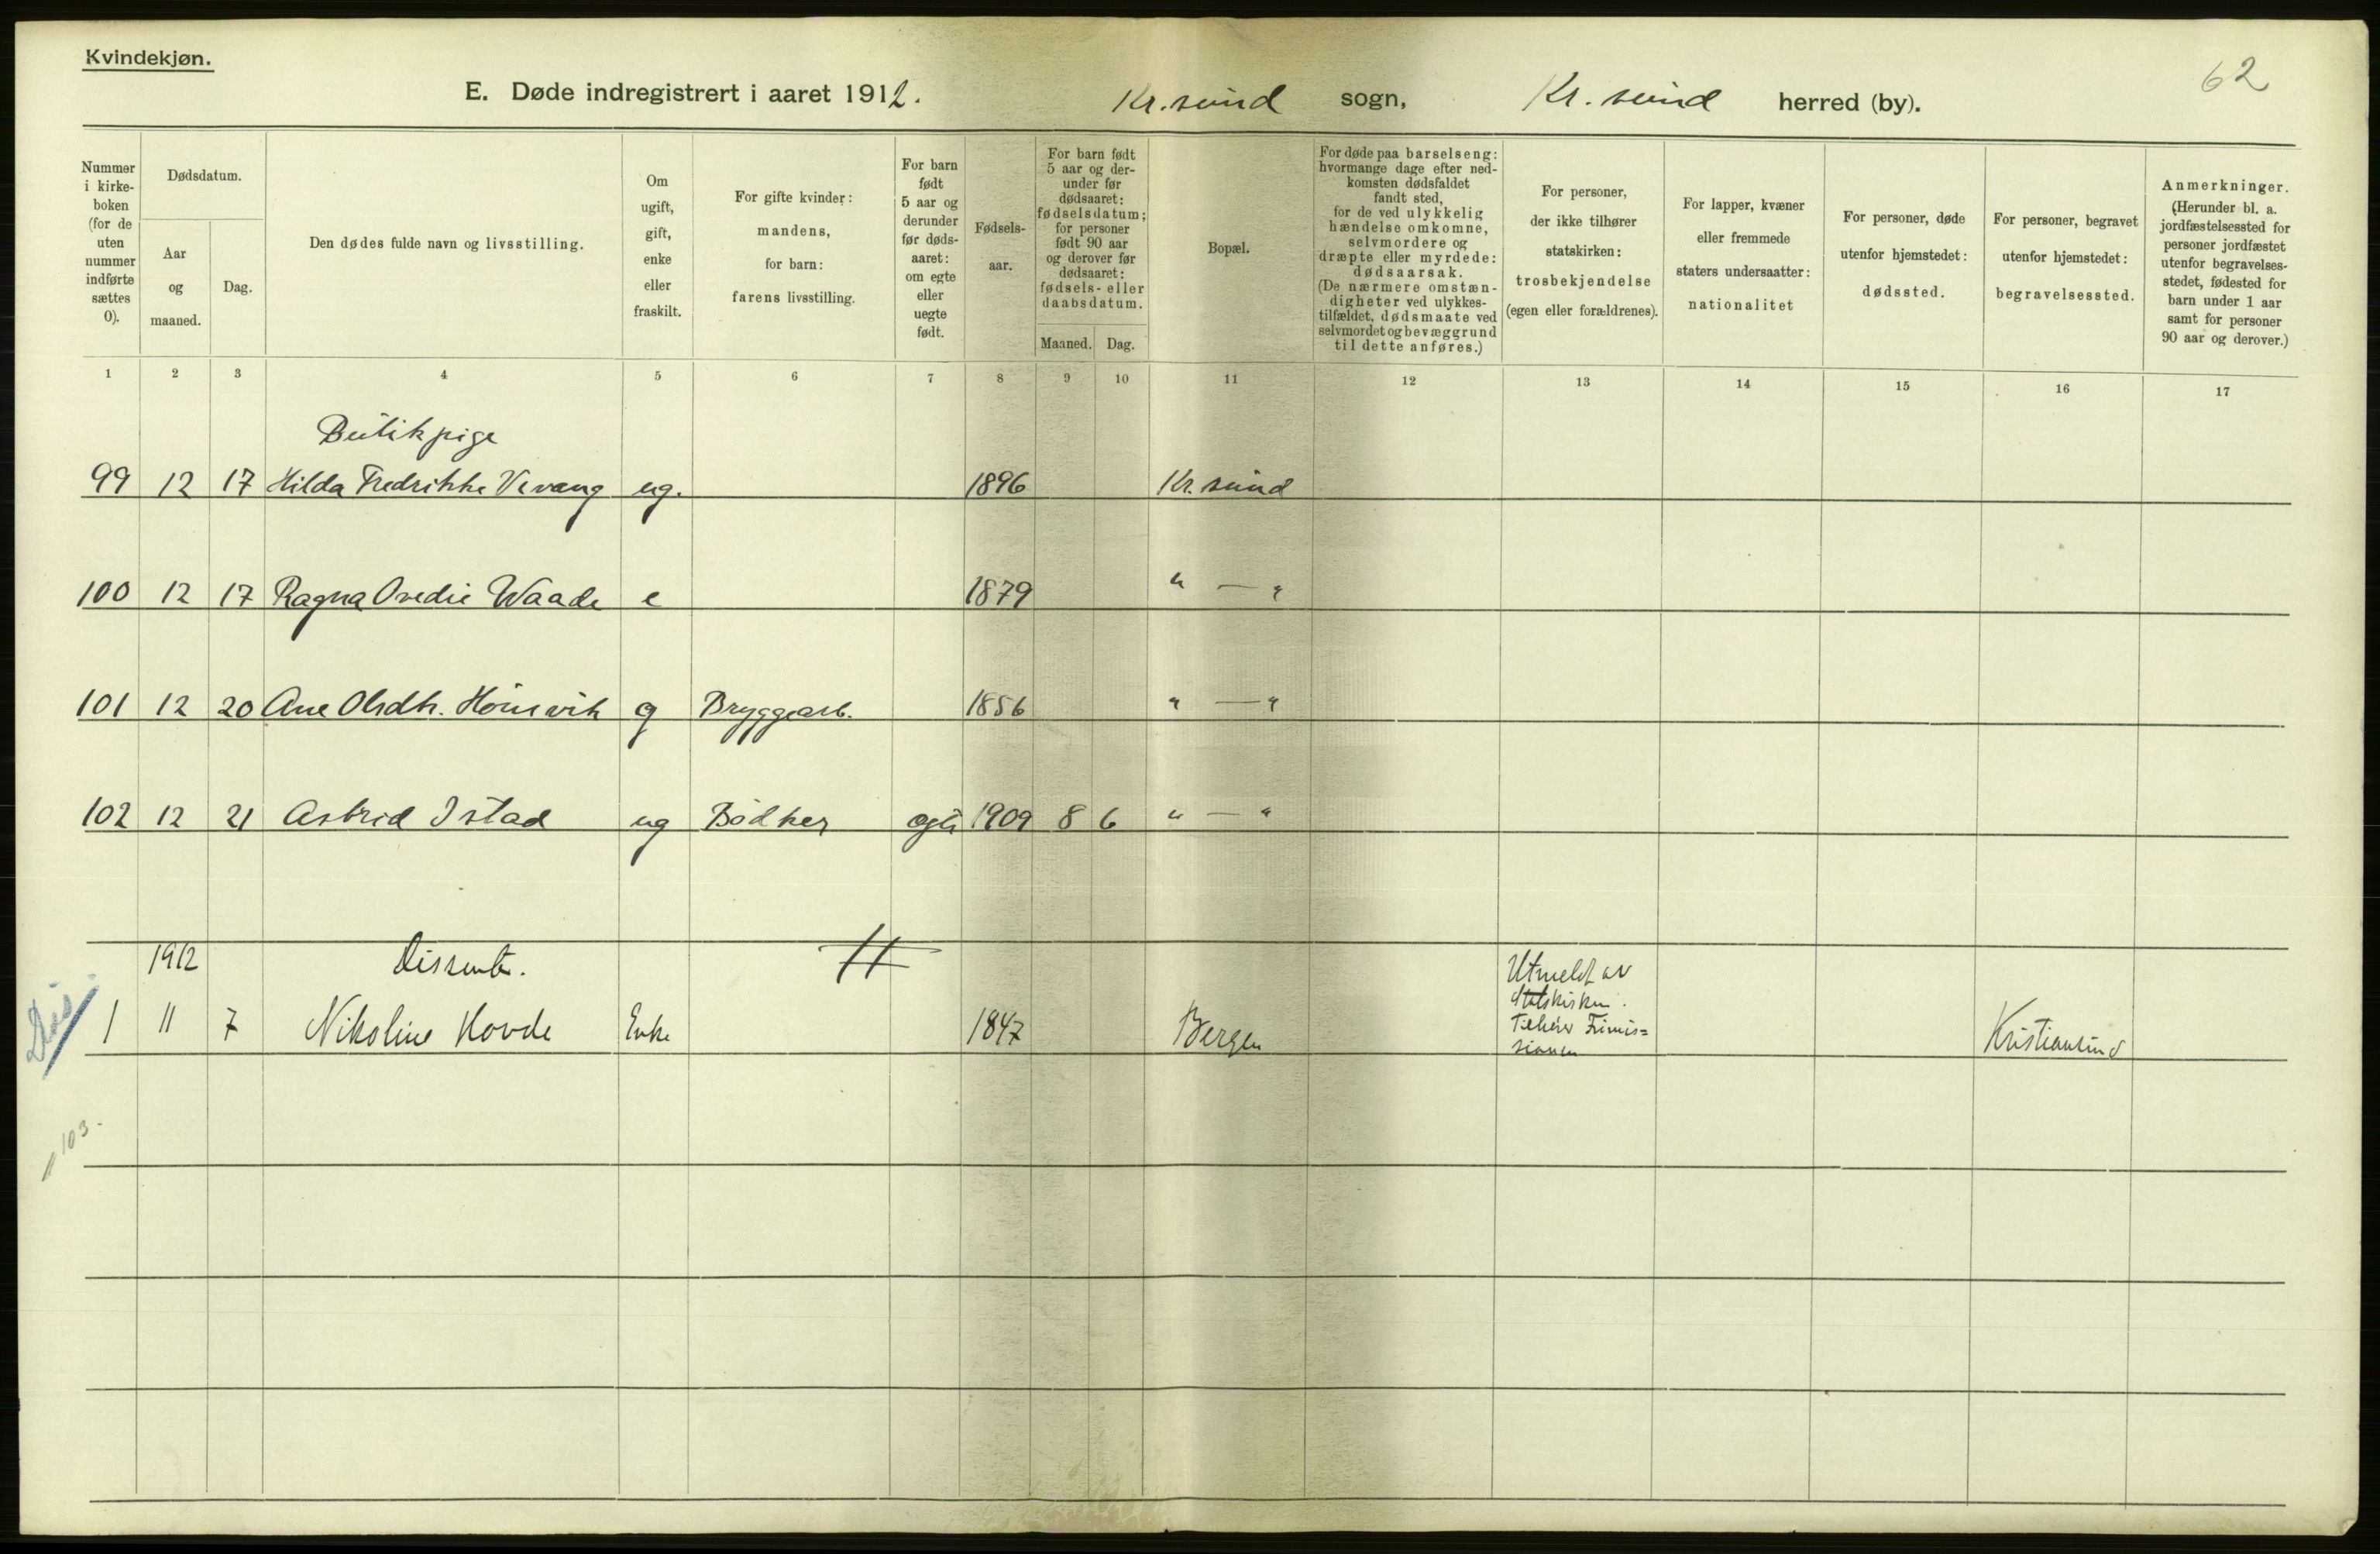 Kvindekjøn.
62
E. Døde indregistrert i aaret 1912. Kr.sund sogn, Kr. sund herred (by).
Nummer i kirke- boken (for de uten nummer indførte sættes 0).
Dødsdatum.
Aar og maaned.
Dag.
Den dødes fulde navn og livsstilling.
Om ugift, gift, enke eller fraskilt.
For gifte kvinder: mandens, for barn: farens livsstilling.
For barn født 5 aar og derunder før døds- aaret: om egte eller uegte født.
Fødsels- aar.
For barn født 5 aar og der- under før dødsaaret: fødselsdatum; for personer født 90 aar og derover før dødsaaret: fødsels- eller daabsdatum.
Maaned. Dag.
Bopæl.
For døde paa barselseng: hvormange dage efter ned- komsten dødsfaldet fandt sted, for de ved ulykkelig hændelse omkomne, selvmordere og dræpte eller myrdede: dødsaarsak. (De nærmere omstæn- digheter ved ulykkes- tilfældet, dødsmaate ved selvmordet og bevæggrund til dette anføres.)
For personer, der ikke tilhører statskirken: trosbekjendelse (egen eller forældrenes).
For lapper, kvæner eller fremmede staters undersaatter: nationalitet
For personer, døde utenfor hjemstedet: dødssted.
For personer, begravet utenfor hjemstedet: begravelsessted.
Anmerkninger. (Herunder bl. a. jordfæstelsessted for personer jordfæstet utenfor begravelses- stedet, fødested for barn under 1 aar samt for personer 90 aar og derover.)
1 2 3 4 5 6 7 8 9 10 11 12 13 14 15 16 17
Butikpige
99 12 17 Hilda Fredrikke Vevang ug. 1896 Kr. sund
100 12 17 Ragna Ovedie Waade e 1879 " — "
101 12 20 Ane Olsdtr. g Bryggearb. 1856 " — "
102 12 21 Astrid Istad ug Bødker egte 1909 8 6 " — "
1912 Dissenter.
Diss 1 11 7 Nikoline Hovde Enke 1847 Bergen Utmeldt av
Statskirken.
Tilhører Frimis=
sionen
Kristiansund
103.